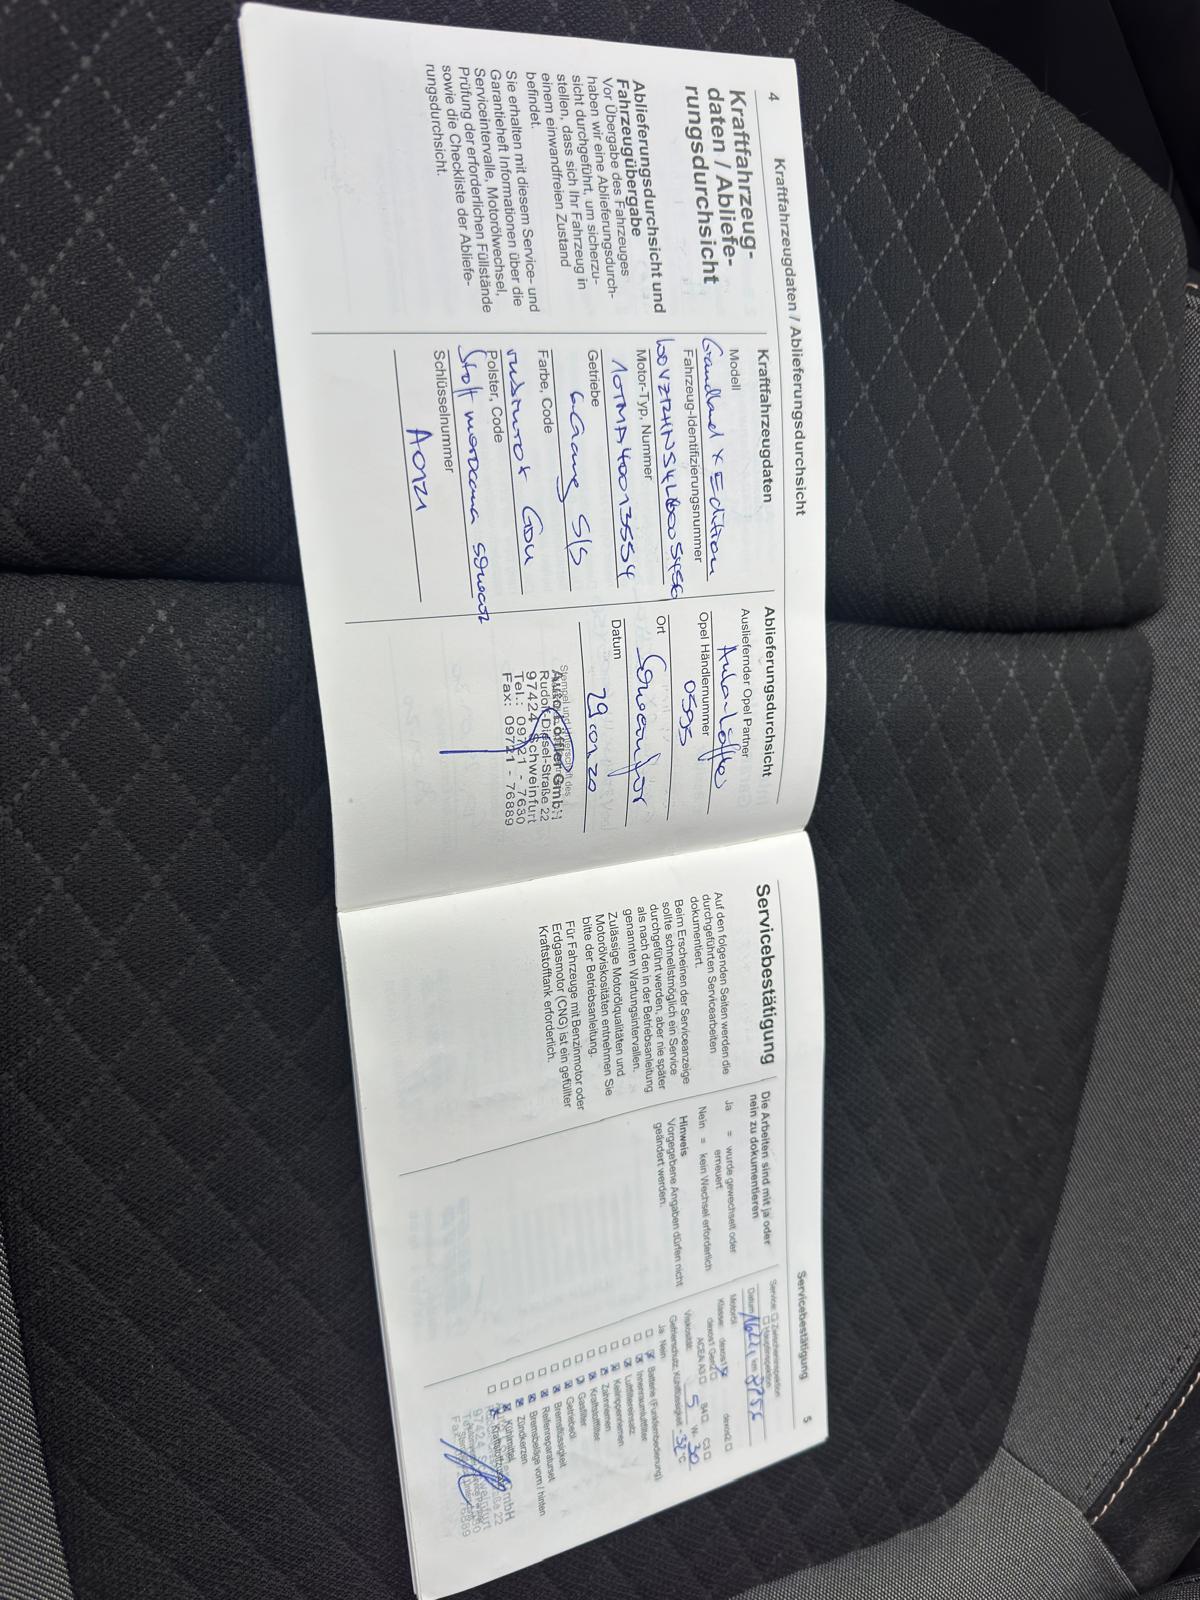 4
Kraftfahrzeugdaten / Ablieferungsdurchsicht
Kraftfahrzeug-
daten / Abliefe-
rungsdurchsicht
Ablieferungsdurchsicht und
Fahrzeugübergabe
Vor Übergabe des Fahrzeuges
haben wir eine Ablieferungsdurch-
sicht durchgeführt, um sicherzu-
stellen, dass sich Ihr Fahrzeug in
einem einwandfreien Zustand
befindet.
Sie erhalten mit diesem Service- und
Garantieheft Informationen über die
Serviceintervalle, Motorölwechsel,
Prüfung der erforderlichen Füllstände
sowie die Checkliste der Abliefe-
rungsdurchsicht.
Kraftfahrzeugdaten
Modell
Grandland X Edition
Fahrzeug-Identifizierungsnummer
Motor-Typ, Nummer
Getriebe
6 Gang S/S
Farbe, Code
Polster, Code
Stoff
Schlüsselnummer
Ablieferungsdurchsicht
Ausliefernder Opel Partner
Opel Händlernummer
0595
Ort
Schweinfurt
Datum
Stempel und Unterschrift des
Auto Löffler GmbH
Rudolf-Diesel-Straße 22
97424 Schweinfurt
Tel.: 09721 - 7630
Fax: 09721 - 76889
Servicebestätigung
5
Servicebestätigung
Auf den folgenden Seiten werden die
durchgeführten Servicearbeiten
dokumentiert.
Beim Erscheinen der Serviceanzeige
sollte schnellstmöglich ein Service
durchgeführt werden, aber nie später
als nach den in der Betriebsanleitung
genannten Wartungsintervallen.
Zulässige Motorölqualitäten und
Motorölviskositäten entnehmen Sie
bitte der Betriebsanleitung.
Für Fahrzeuge mit Benzinmotor oder
Erdgasmotor (CNG) ist ein gefüllter
Kraftstofftank erforderlich.
Die Arbeiten sind mit ja oder
nein zu dokumentieren
Ja = wurde gewechselt oder
erneuert
Nein = kein Wechsel erforderlich
Hinweis
Vorgegebene Angaben dürfen nicht
geändert werden.
Service: Zwischeninspektion
Hauptinspektion
Datum km
Motoröl
Klasse: dexos1 dexos2
dexos1 Gen2
ACEA: A3 B4 C3
Viskosität: 5 W- 30
Gefrierschutz, Kühlflüssigkeit °C
Ja Nein
Batterie (Funkfernbedienung)
Innenraumluftfilter
Luftfiltereinsatz
Keilrippenriemen
Zahnriemen
Kraftstofffilter
Gasfilter
Getriebeöl
Bremsflüssigkeit
Reifenreparaturset
Bremsbeläge vorn / hinten
Zündkerzen
Kühlmittel
97424 Schweinfurt